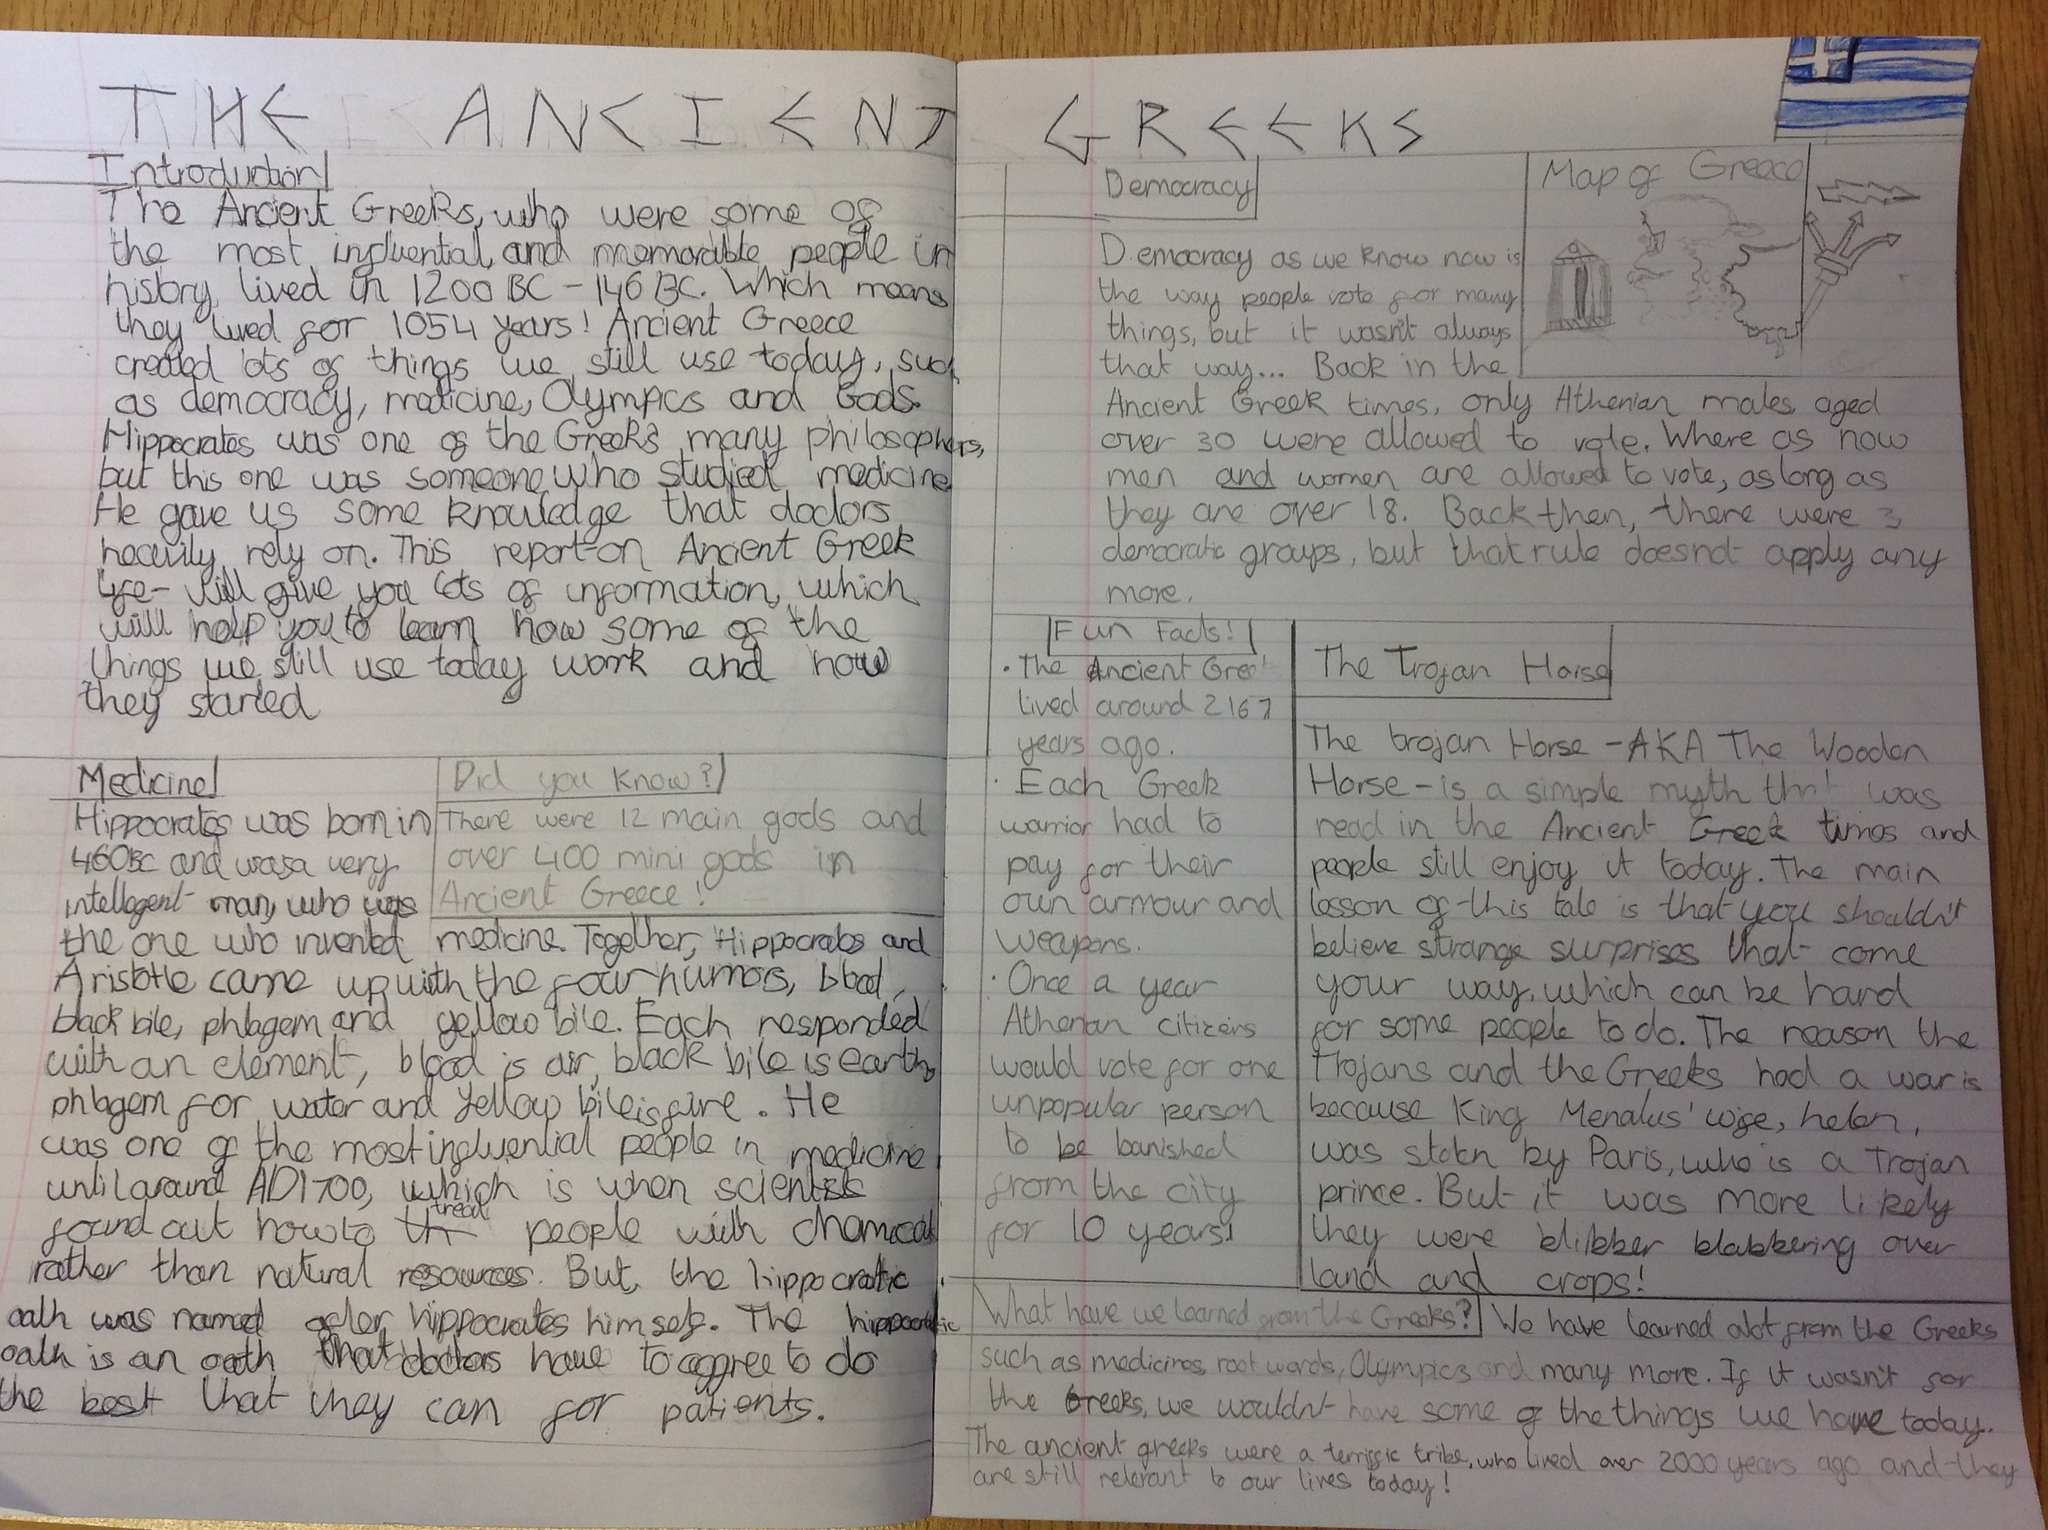 THE ANCIENT GREEKS
Introduction
The Ancient Greeks, who were some of
the most influential, and memorable people in
history, lived in 1200 BC - 146 BC. Which means
they lived for 1054 years! Ancient Greece
created lots of things we still use today, such
as democracy, medicine, Olympics and Gods.
Hippocrates was one of the Greek's many philosophers,
but this one was someone who studied medicine
He gave us some knowledge that doctors
heavily rely on. This report-on Ancient Greek
life- will give you lots of information, which
will help you to learn how some of the
things we still use today work and how
they started
Medicine
Hippocrates was born in
460BC and was a very
intellagent man, who was
the one who invented medicine. Together, Hippocrates and
Aristotle came up with the four humors, blood,
black bile, phlagem and yellow bile. Each responded
with an element, blood is air, black bile is earth,
phlagem for water and yellow bile is fire. He
was one of the most influential people in medicine
until around AD1700, which is when scientists
found out how to treat people with chamicals
rather than natural resources. But, the hippocratic
oath was named after hippocrates himself. The hippocratic
oath is an oath that doctors have to aggree to do
the best that they can for patients.
Did you know?
There were 12 main gods and
over 400 mini gods in
Ancient Greece!
Democracy
Democracy as we know now is
the way people vote for many
things, but it wasn't always
that way... Back in the
Ancient Greek times, only Athenian males, aged
over 30 were allowed to vote. Where as now
men and women are allowed to vote, as long as
they are over 18. Back then, there were 3
democratic groups, but that rule doesnt apply any
more.
Map of Greece
Fun Facts!
· The Ancient Gree
lived around 2167
years ago.
· Each Greek
warrior had to
pay for their
own armour and
weapons.
· Once a year
Athenian citizens
would vote for one
unpopular person
to be banished
from the city
for 10 years!
The Trojan Horse
The trojan Horse - AKA The Wooden
Horse - is a simple myth that was
read in the Ancient Greek times and
people still enjoy it today. The main
lesson of this tale is that you shouldn't
believe strange surprises that come
your way, which can be hard
for some people to do. The reason the
Trojans and the Greeks had a war is
because King Menalus' wife, helen,
was stolen by Paris, who is a Trojan
prince. But it was more likely
they were blibber blabbering over
land and crops!
What have we learned from the Greeks? We have learned alot from the Greeks
such as medicines, root words, Olympics and many more. If it wasn't for
the Greeks, we wouldn't have some of the things we have today.
The ancient greeks were a terrific tribe, who lived over 2000 years ago and they
are still relevant to our lives today!